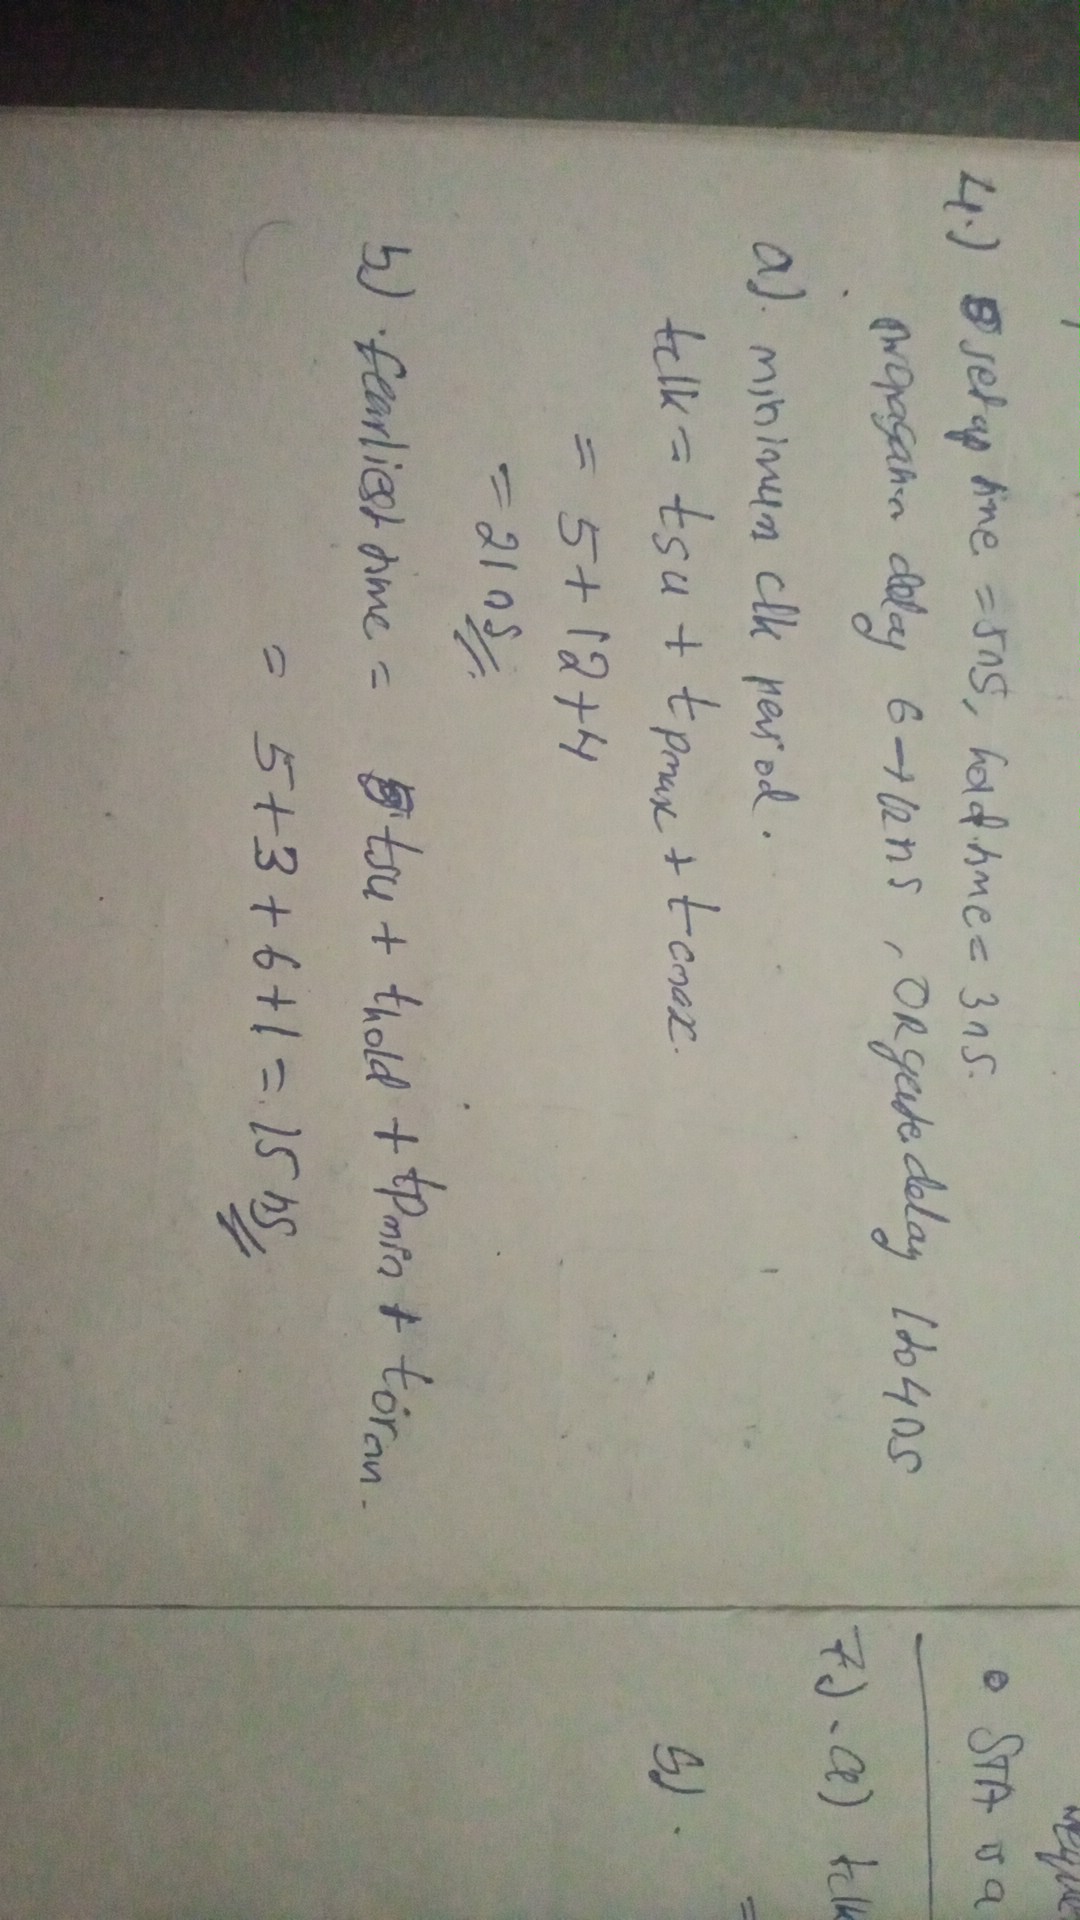 4.) setup time = 5ns, hold time = 3ns.
propagan delay 6→12ns, OR gate delay 1to4ns
a). minimum clk period.
tclk = tsu + tpmax + tcmax.
= 5+12+4
= 21ns
b) earliest time = tsu + thold + tpmin + tormin.
= 5+3+6+1 = 15ns
• STA
7.) - a) tclk
=
b).